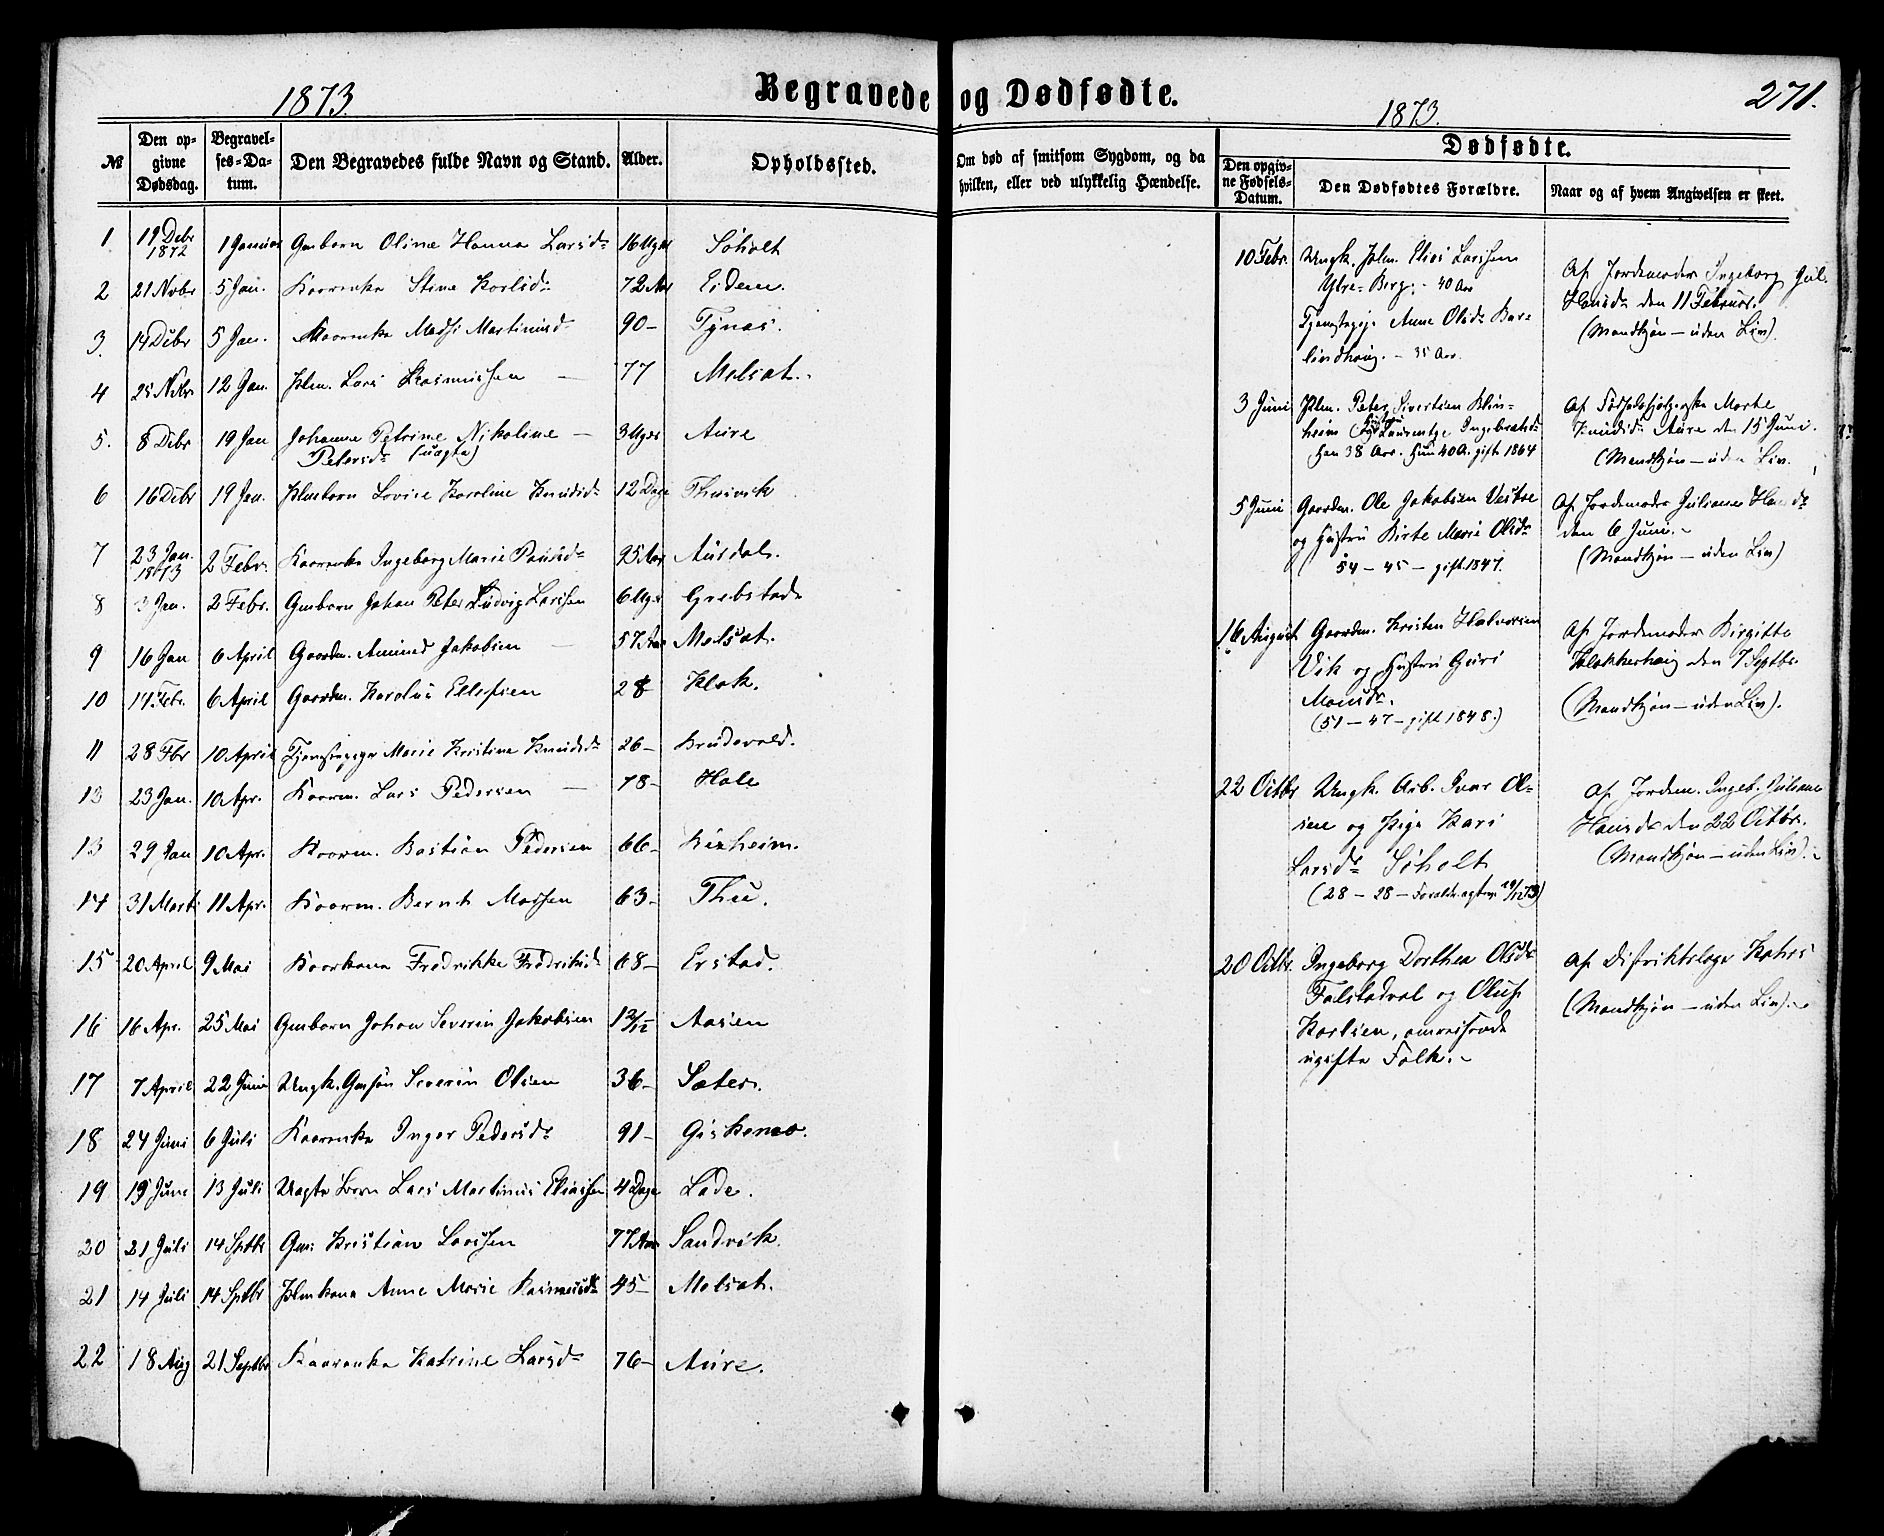 1873.
Begravede og Dødfødte.
1873.
271.
№
Den opgivne Dødsdag.
Begravelses-Datum.
Den Begravedes fulde Navn og Stand.
Alder.
Opholdssted.
Om død af smitsom Sygdom, og da hvilken, eller ved ulykkelig Hændelse.
Dødfødte.
Den opgivne Fødsels-Datum.
Den Dødfødtes Forældre.
Naar og af hvem Angivelsen er skeet.
1 19 Debr 1872 1 Januar Gmbarn Oline Hanna Larsdr 16 Uger Søholt
2 21 Novbr 5 Jan. Kaarenke Stine Karlsdr 72 Aar Eidem.
3. 14 Debr 5 Jan. Kaarenke Madsi Martinusd 90 – Tynæs.
4 25 Novbr. 12 Jan. Hlm. Lars Rasmussen – 77 Melsæt.
5. 8 Debr 19 Jan Johanne Petrine Nikoline – 3 Uger Aure
Petersdr (uægte)
6 16 Debr 19 Jan. Hlmbarn Lovise Karoline Knudsdr 12 Dage Thuvik
7 23 Jan. 1873 2 Febr. Kaarenke Ingeborg Marie Poulsdr 95 Aar Aursdal.
8 3 Jan. 2 Febr. Gmbarn Johan Peter Ludvig Larsen 6 Uger Grebstad
9 16 Jan 6 April Gaardm. Amund Jakobsen – 57 Aar Melsæt.
10 14 Febr. 6 April Gaardm. Karolus Ellefsen 28 Klok.
11 28 Fbr 10 April Tjenestepige Marie Kristine Knudsdr 26 – Brudevold.
13 23 Jan. 10 Apr. Kaarm. Lars Pedersen – 78 – Hole
13 29 Jan 10 Apr. Kaarm. Bastian Pedersen 66 –
14 31 Marts 11 Apr. Kaarm. Bernt Massen 63 – Thu.
15 20 April 9 Mai Kaarkone Fredrikke Fredriksdr 68 – Erstad.
16 16 Apr. 25 Mai Gmbarn Johan Severin Jakobsen 12/12 Aasen
17 7 April 22 Juni Ungk. Gmsøn Severin Olsen 36 – Sæter.
18 24 Juni 6 Juli Kaarenke Inger Pedersdr 91 – Giskemo.
19 19 June 13 Juli Uægte Barn Lars Martinus Eliassen 4 Dage Lade.
20 21 Juli 14 Sptbr Gm. Kristian Larssen 77 Aar Sandvik.
21 14 Juli 14 Sptbr Hlmkone Anne Marie Rasmusdr 45 – Melsæt.
22 18 Aug 21 Septbr Kaarenke Katrine Larsdr 76 – Aure.
10 Febr. Ungk. Hlm. Elias Larssen
Ytre-Berg. – 40 Aar
Tjenestepige Anne Olsdr
lindhaug. – 35 Aar.
Af Jordemoder Ingeborg Jul.
Hansdr den 11 Februar.
(Mandkjøn – uden Liv).
3 Juni Hlm. Peter Sivertsen Blin-
heim og Hustru Laurentze Ingebrigtsd
Han 38 Aar. Hun 40 A. gift 1864
Af Fødselshjelperske Marte
Knudsdr Aure den 15 Juni.
(Mandkjøn – uden Liv.
5 Juni Gaardm. Ole Jakobsen Vestre
og Hustru Birte Marie Olsdr
54 – 45 – gift 1847.
Af Jordemoder Juliane Hansdr
den 6 Juni. –
(Mandkjøn – uden Liv)
16 August Gaardm. Kristen Halvorsen
Vik og Hustru Guri
Monsdr.
(51 – 47 – gift 1848.)
Af Jordemoder Birgitte
Klokkerhaug den 7 Septbr.
(Mandkjøn – uden Liv).
22 Octbr Ungk. Arb. Ivar Ol-
sen og Pige Kari
Larsdr Søholt
(28 – 28 –
Af Jordem. Ingeb. Juliane
Hansdr den 22 Octbr.
(Mandkjøn – uden Liv). –
20 Octbr. Ingeborg Dorthea Olsdr
og Oluf
Karlsen, omreisende
ugifte Folk. –
Af Distriktslæge Kahrs
(Mandkjøn – uden Liv). –